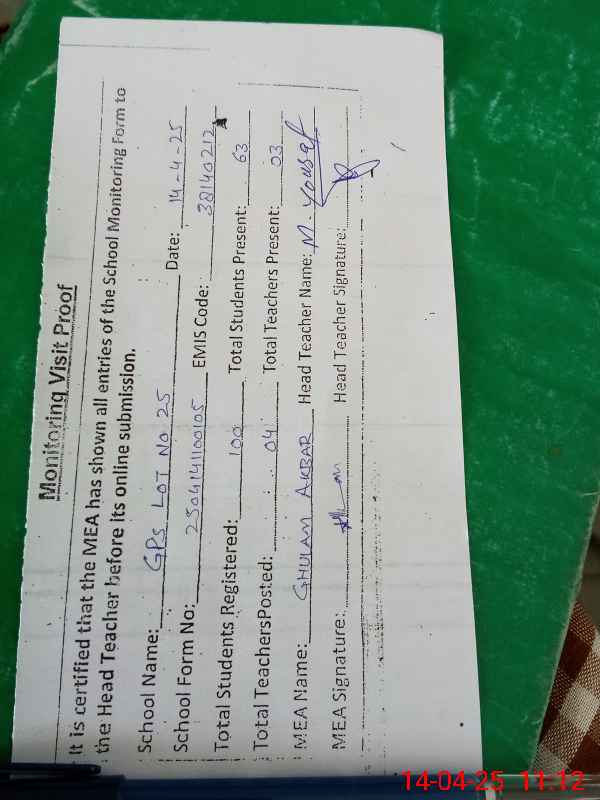 Monitoring Visit Proof
It is certified that the MEA has shown all entries of the School Monitoring Form to
the Head Teacher before its online submission.
School Name: GPS LOT NO 25 Date: 14-4-25
School Form No: 25041411100105 EMIS Code: 38140212
Total Students Registered: 100 Total Students Present: 63
Total TeachersPosted: 04 Total Teachers Present: 03
MEA Name: GHULAM AKBAR Head Teacher Name: M. Yousaf
MEA Signature: Head Teacher Signature:
14-04-25 11:12